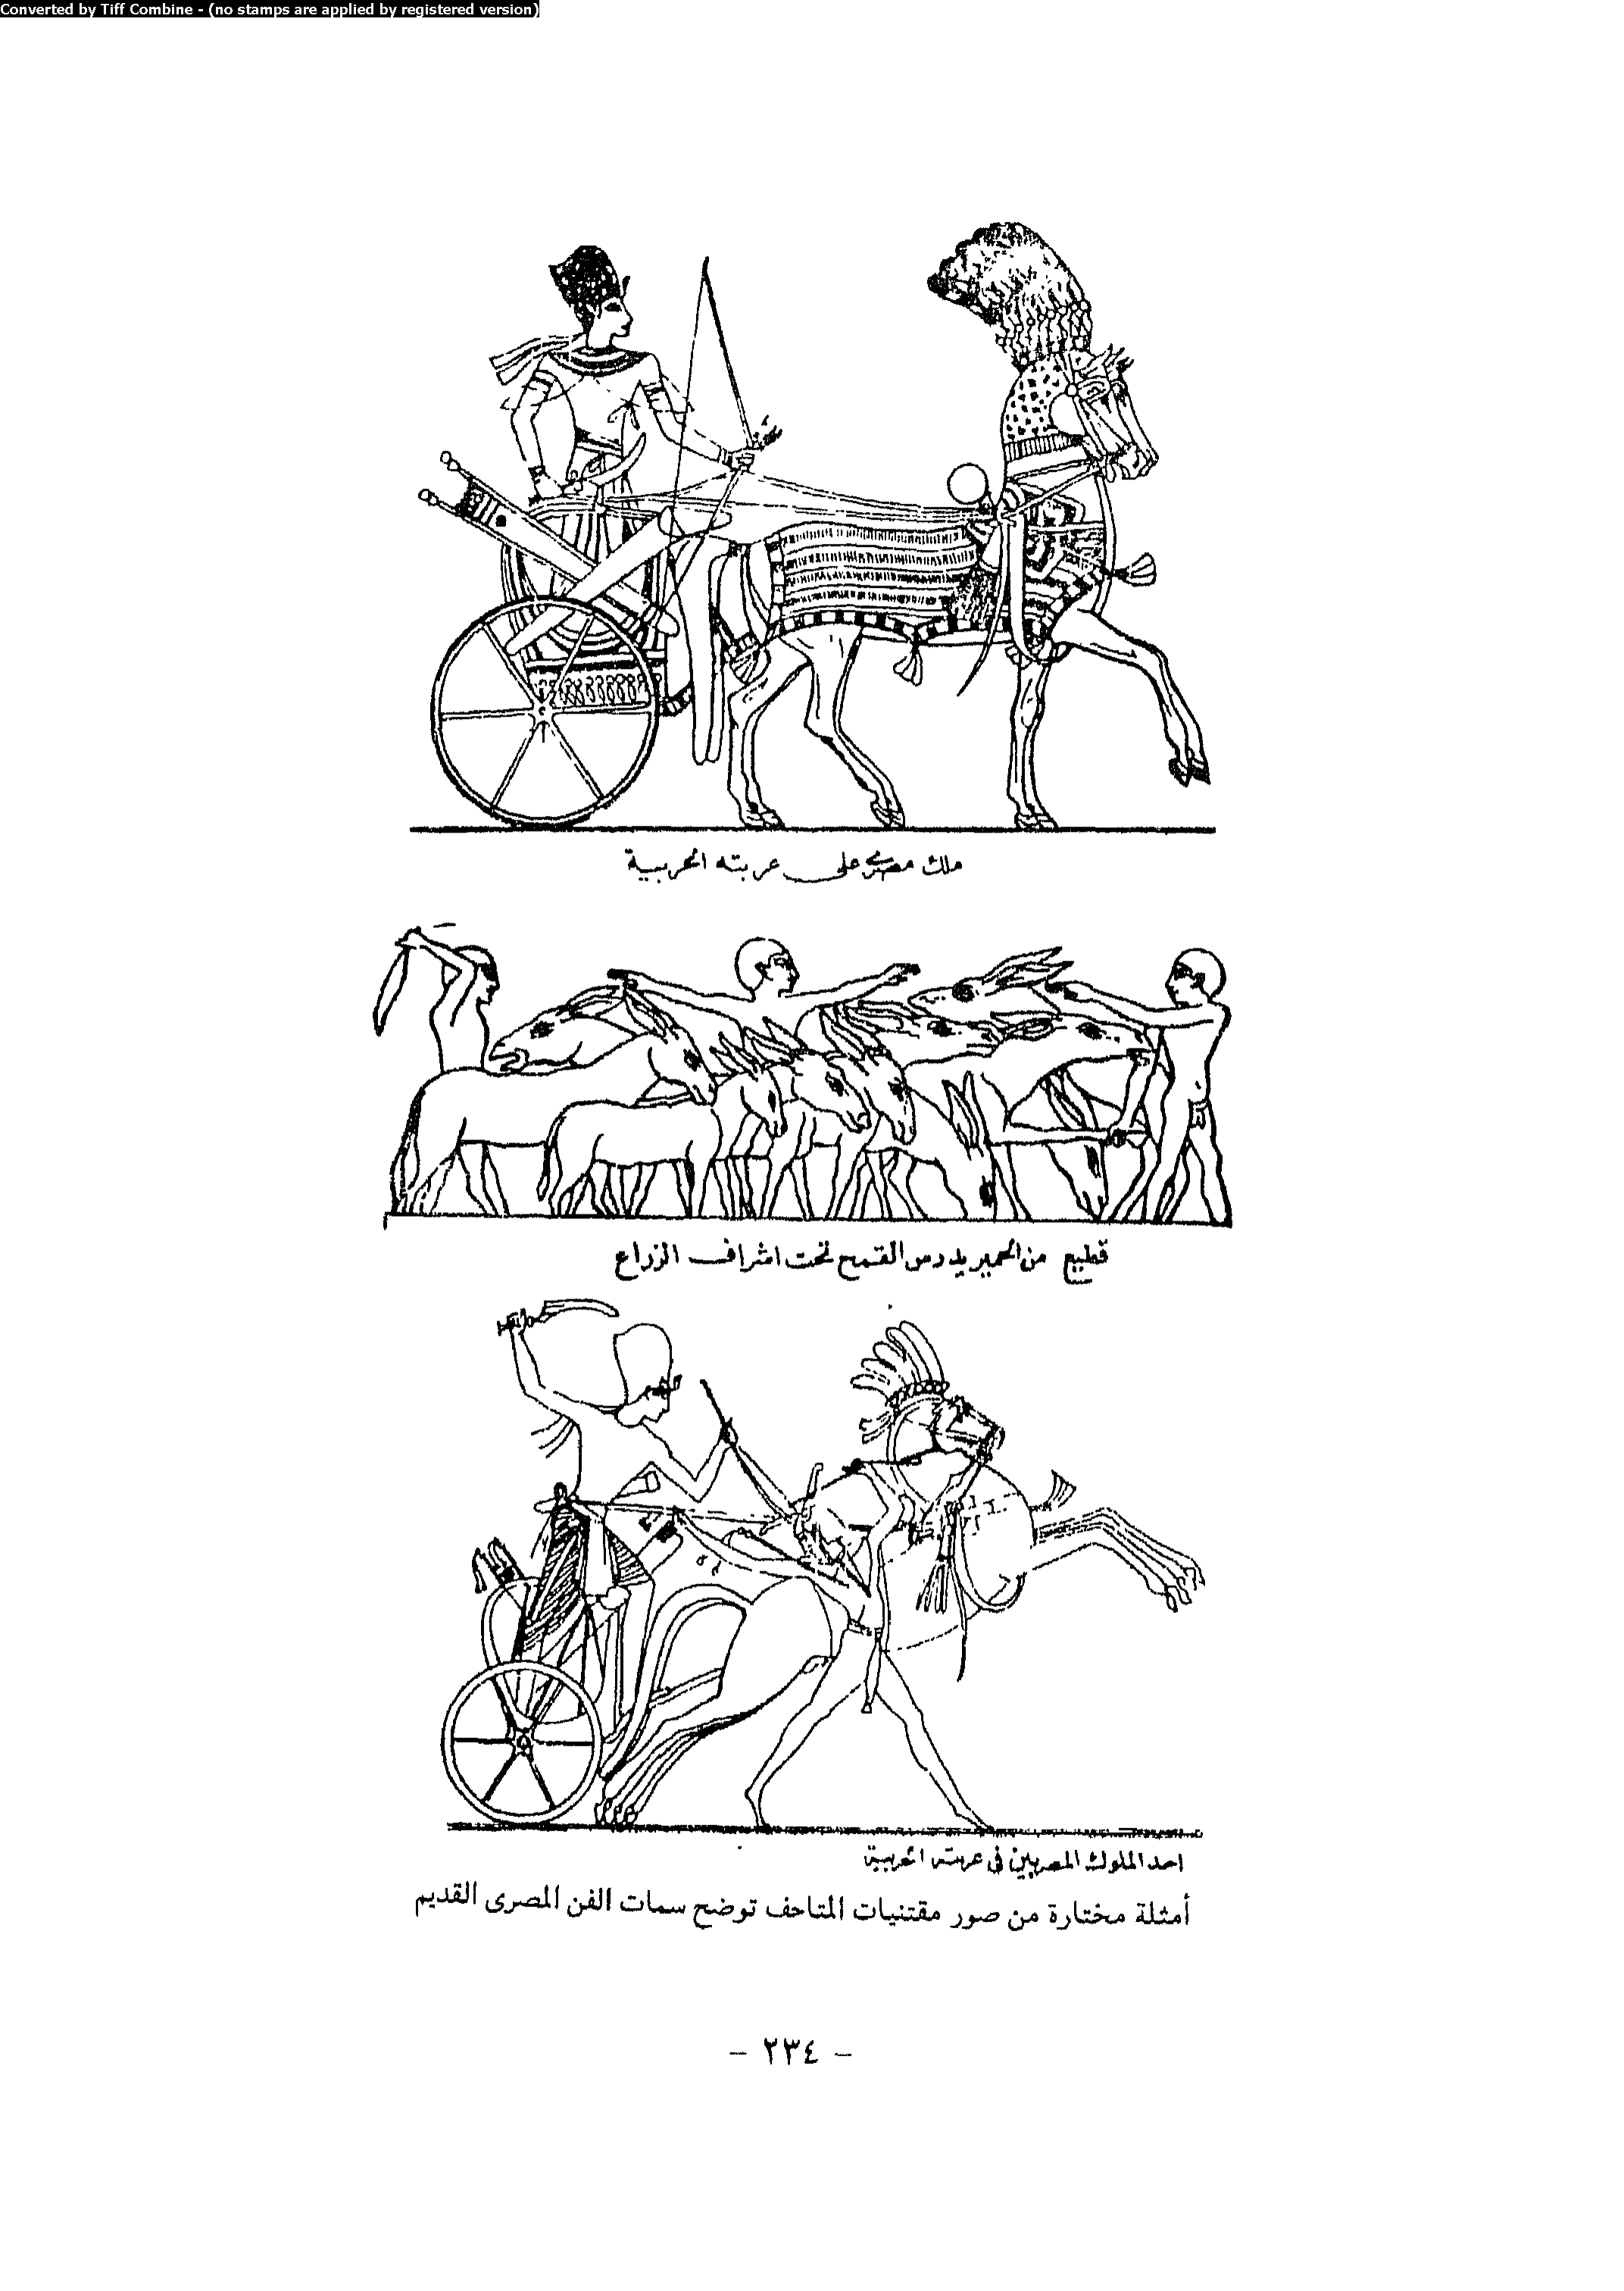 Converted by Tiff Combine - (no stamps are applied by registered version)
ملك مصرى على عربته الحربية
قطيع من الحمير يدرس القمح تحت اشراف الزراع
احد الملوك المصريين فى عربته الحربية
أمثلة مختارة من صور مقتنيات المتاحف توضح سمات الفن المصرى القديم
- ٢٣٤ -